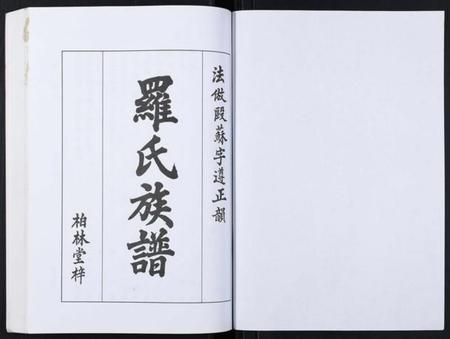 法倣殹蘇字遵正韻
羅氏族譜
柏林堂梓